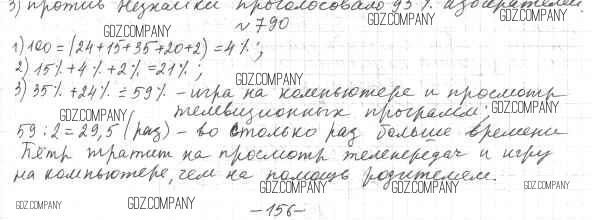 3) против Незнайки проголосовало 93% избирателей.
GDZ.COMPANY GDZ.COMPANY GDZ.COMPANY
№790
1) 100 = (24+15+35+20+2) = 4%;
2) 15% + 4% + 2% = 21%;
GDZ.COMPANY
3) 35% + 24% = 59% – игра на компьютере и просмотр
GDZ.COMPANY телевизионных программ; GDZ.COMPANY
59 : 2 = 29,5 (раз) – во столько раз больше времени
Пётр тратит на просмотр телепередач и игру
на компьютере, чем на помощь родителям.
GDZ.COMPANY GDZ.COMPANY GDZ.COMPANY
GDZ.COMPANY –156– GDZ.COMPANY